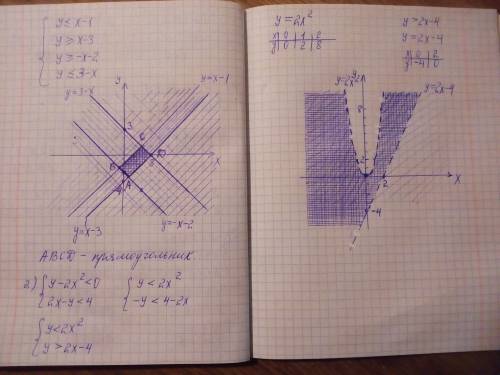 y ≤ x-1
y ≥ x-3
y ≥ -x-2
y ≤ 3-x
y=3-x
y
y=x-1
3
C
B
D
x
A
y=x-3
y=-x-2
ABCD - прямоугольник.
2) { y-2x²<0 { y < 2x²
{ 2x-y<4 { -y < 4-2x
{ y<2x²
{ y > 2x-4
y=2x²
x | 0 | 1 | 2
y | 0 | 2 | 8
y>2x-4
y=2x-4
x | 0 | 2
y | -4 | 0
y=2x²
y
y=2x-4
8
2
2
x
-4